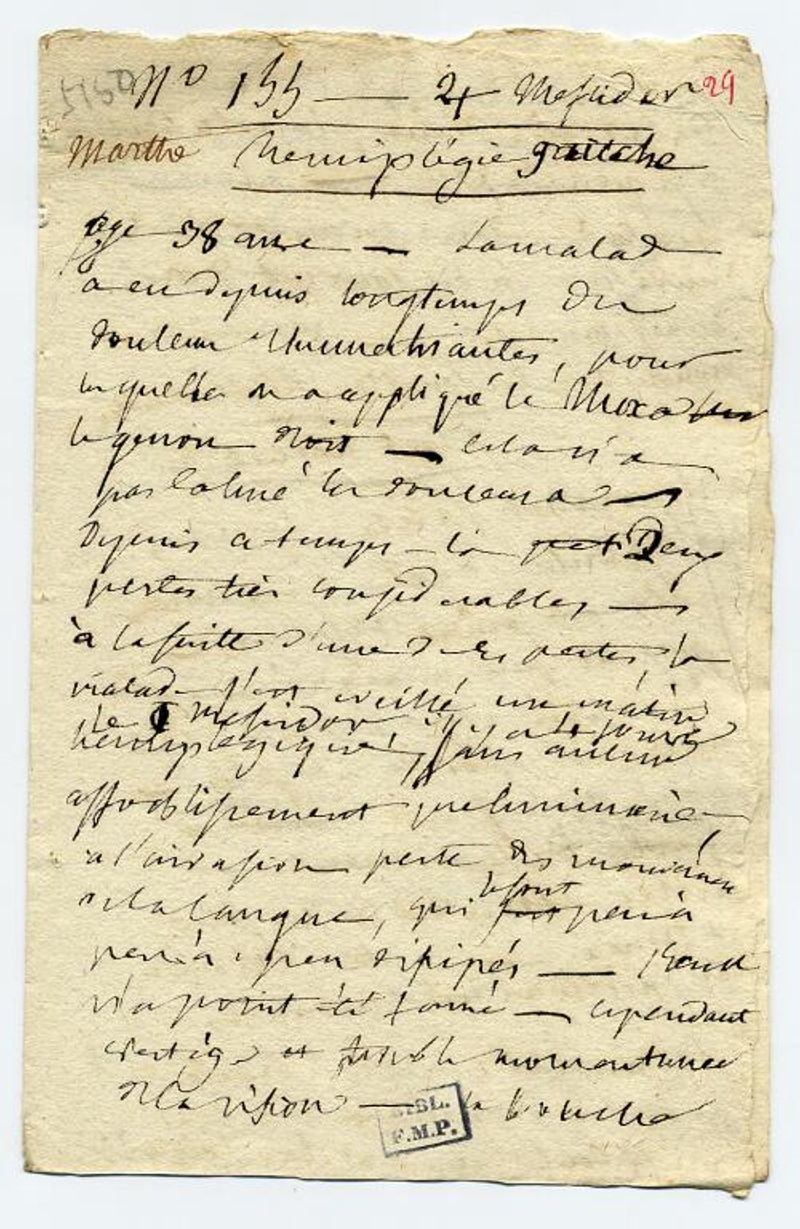 5150 N° 155 — 24 Messidor 29
Marthe hemiplégie gauche
age 38 ans — La malade
a eu depuis longtemps des
douleurs rhumatisantes, pour
lesquelles on a appliqué le Moxa sur
le genou droit — cela n'a
pas calmé les douleurs —
Depuis ce temps — la Deux
pertes très considérables —
à la suitte d'une de ces pertes, la
malade s'est eveillé un matin
le Messidor
hemiplegique, sans aucune
affoiblissement preliminaire
a l'invasion perte des mouvemens
de la langue, qui se sont peu à
peu à peu dissipés — Bouche
n'a point été tourné — cependant
vertige et trouble momentanée
de la vision — la bouche
BIBL.
F.M.P.